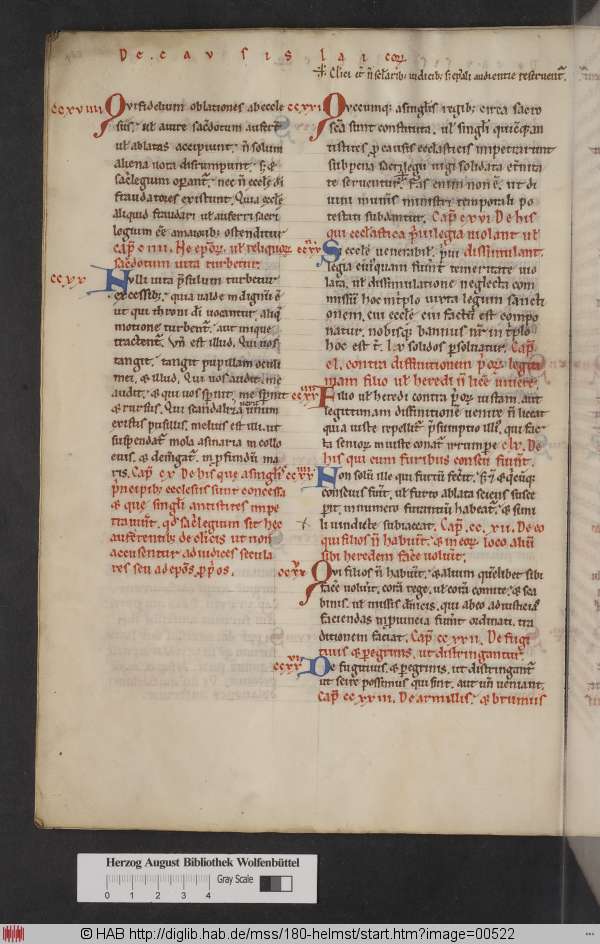 De cavsis laicoꝝ
Cl̃ici ut ñ sclarib; iudicib; s; epali audientie reseruent̃.
ccxviiii Qvi fidelium oblationes ab eccle
siis, ul̃ a iure sac̃dotum aufert̃
ul̃ ablatas accipiunt, ñ solum
aliena uota disrumpunt, s; &
sac̃legium operant̃, nec ñ eccle di
fraudatores existunt. Quia eccle
aliquid fraudari ul̃ auferri sacri
logium ee a maiorib; ostenditur
Cap̃
sac̃dotum uita turbetur.
ccxx Nvlli uita p̃sulum turbetur
excessib;, quia ualde indignũ ẽ
ut qui throni dĩ uocantur, aliq̃
motione turbent̃, aut inique
tractent̃. Vñ est illud. Qui uos
tangit, tangit pupillam oculi
mei, & illud. Qui uos audit, me
audit, & qui uos sp̃nit, me sp̃nit
& rursus. Qui scandalizauerit unum
ex istis pusillis, melius est illi, ut
suspendat̃ mola asinaria in collo
eius, & demergat̃ in p̃fundũ ma
ris. Cap̃ De his que a singl̃is
p̃ncipib; ecclesiis sunt concessa
& que singl̃i antistites impe
trauert̃, qd̃ sac̃legium sit hec
auferentib; de clicis ut non
accusentur ad iudices secula
res seu ad ep̃os p̃p̃os.
ccxxi Qvecumq; a singl̃is regib; circa sacro
sc̃a sunt constituta, ul̃ singl̃i quicq; an
tistites p̃ causis ecclasticis impetrarunt
sub pena sacrilegii iugi solidata et̃nita
te seruentur. Fas enim non ẽ, ut di
uini mun̾is ministri temporali po
testati subdantur. Cap̃ c xvi De his
qui ecclastica p̃uilegia violant ul̃
dissimulant.
Si ecclẽ venerabil̃ p̃ui
legia cuiq̃uam fiunt temeritate uio
lata, ul̃ dissimulatione neglecta com
missũ hoc in tp̃lo iuxta legum sancti
onem, cui ecclẽ eiu factũ est compo
natur, nobisq; bannus nr̃ in tp̃lo
hoc est t̃. lx solidos p̃soluatur. Cap̃
contra diffinitionem p̃oꝝ legiti
mam filio ul̃ heredi ñ licẽ uenire.
Filio ul̃ heredi contra p̃oꝝ iustam aut
legittimam diffinitionẽ uenire ñ liceat
quia iuste repellit̃ p̃sumptio illi, qui fac
ta senioꝝ iniuste conat̃ irrumpe. Cap̃ De
his qui cum furibus consen̾ fiunt.
Non solũ ille qui furtũ fecit, s; & q̃cũq;
conscius fuit, ul̃ furto ablata sciens susce
pit, in numero furantiũ habeat̃, & simi
li vindicte subiaceat. Cap̃. cc. xii. De eo
qui filios ñ habuit̃, & in eoꝝ loco aliũ
sibi heredem face voluit̃.
ccxxv Qvi filios ñ habuit̃, & alium quẽlibet sibi
face voluit̃, corã rege, ul̃ corã comite, & sca
binis, ul̃ missis dñicis, qui ab eo ad iusticiã
faciendas in p̃uincia fiunt ordinati, tra
ditionem faciat. Cap̃ cc xxii. De fugi
tiuis & peg̃nis, ut distringantur̃
ccxxvi De fugitiuis, & pereg̃nis, ut distringant̃
ut scire possimus qui sint, aut uñ ueniant.
Cap̃ cc xxiii. De armillis, & bruniis
Herzog August Bibliothek Wolfenbüttel
Gray Scale
0 1 2 3 4
© HAB http://diglib.hab.de/mss/180-helmst/start.htm?image=00522